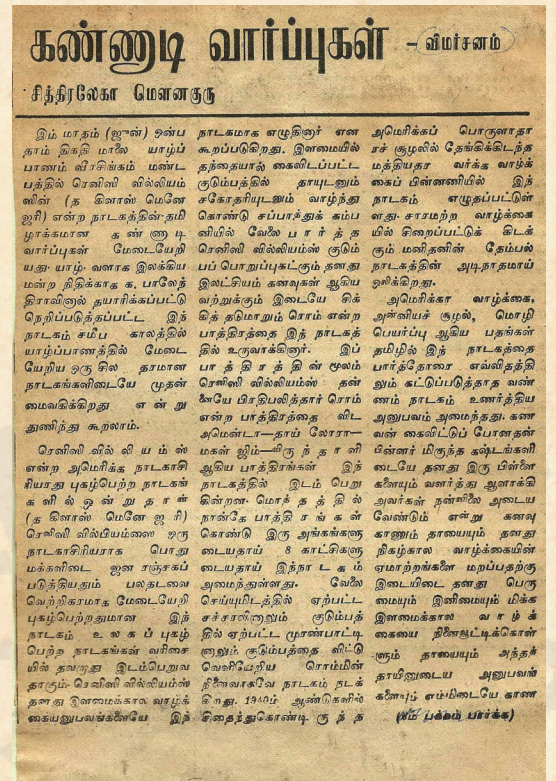 கண்ணாடி வார்ப்புகள் - விமர்சனம்
சித்திரலேகா மௌனகுரு
இம் மாதம் (ஜுன்) ஒன்ப
தாம் திகதி மாலை யாழ்ப்
பாணம் வீரசிங்கம் மண்ட
பத்தில் ரெனிஸி வில்லியம்
ஸின் (த கிளாஸ் மெனே
ஜரி) என்ற நாடகத்தின் தமி
ழாக்கமான கண்ணாடி
வார்ப்புகள் மேடையேறி
யது. யாழ். வளாக இலக்கிய
மன்ற நிதிக்காக க. பாலேந்
திராவினால் தயாரிக்கப்பட்டு
நெறிப்படுத்தப்பட்ட இந்
நாடகம் சமீப காலத்தில்
யாழ்ப்பாணத்தில் மேடை
யேறிய ஒரு சில தரமான
நாடகங்களிடையே முதன்
மைவகிக்கிறது என்று
துணிந்து கூறலாம்.
ரெனிஸி வில்லியம்ஸ்
என்ற அமெரிக்க நாடகாசி
ரியரது புகழ்பெற்ற நாடகங்
களில் ஒன்றுதான்
(த கிளாஸ் மெனேஜரி)
ரெனிஸி வில்லியம்ஸை ஒரு
நாடகாசிரியராக பொது
மக்களிடை ஜனரஞ்சகப்
படுத்தியதும் பலதடவை
வெற்றிகரமாக மேடையேறி
புகழ்பெற்றதுமான இந்
நாடகம் உலகப் புகழ்
பெற்ற நாடகங்கள் வரிசை
யில் தவறாது இடம்பெறுவ
தாகும். ரெனிஸி வில்லியம்ஸ்
தனது இளமைக்கால வாழ்க்
கையனுபவங்களையே இந்
நாடகமாக எழுதினார் என
கூறப்படுகிறது. இளமையில்
தந்தையால் கைவிடப்பட்ட
குடும்பத்தில் தாயுடனும்
சகோதரியுடனும் வாழ்ந்து
கொண்டு சப்பாத்துக் கம்ப
னியில் வேலை பார்த்த
ரெனிஸி வில்லியம்ஸ் குடும்
பப் பொறுப்புகட்கும் தனது
இலட்சியம் கனவுகள் ஆகிய
வற்றுக்கும் இடையே சிக்
கித் தடுமாறும் ரொம் என்ற
பாத்திரத்தை இந் நாடகத்
தில் உருவாக்கினார். இப்
பாத்திரத்தின் மூலம்
ரெனிஸி வில்லியம்ஸ் தன்
னையே பிரதிபலித்தார் ரொம்
என்ற பாத்திரத்தை விட
அமென்டா—தாய் லோரா—
மகள் ஜிம்—விருந்தாளி
ஆகிய பாத்திரங்கள் இந்
நாடகத்தில் இடம் பெறு
கின்றன. மொத்தத்தில்
நான்கே பாத்திரங்கள்
கொண்டு இரு அங்கங்களு
டையதாய் 8 காட்சிகளு
டையதாய் இந்நாடகம்
அமைந்துள்ளது. வேலை
செய்யுமிடத்தில் ஏற்பட்ட
சச்சரவினாலும் குடும்பத்
தில் ஏற்பட்ட முரண்பாட்டி
னாலும் குடும்பத்தை விட்டு
வெளியேறிய ரொம்மின்
நினைவாகவே நாடகம் நடக்
கிறது. 1940ம் ஆண்டுகளில்
சிதைந்துகொண்டிருந்த
அமெரிக்கப் பொருளாதா
ரச் சூழலில் தேங்கிக்கிடந்த
மத்தியதர வர்க்க வாழ்க்
கைப் பின்னணியில் இந்
நாடகம் எழுதப்பட்டுள்
ளது. சாரமற்ற வாழ்க்கை
யில் சிறைப்பட்டுக் கிடக்
கும் மனிதனின் தேம்பல்
நாடகத்தின் அடிநாதமாய்
ஒலிக்கிறது.
அமெரிக்கா வாழ்க்கை,
அன்னியச் சூழல், மொழி
பெயர்ப்பு ஆகிய பதங்கள்
தமிழில் இந் நாடகத்தை
பார்த்தோரை எவ்விதத்தி
லும் கட்டுப்படுத்தாத வண்
ணம் நாடகம் உணர்த்திய
அனுபவம் அமைந்தது. கண
வன் கைவிட்டுப் போனதன்
பின்னர் மிகுந்த கஷ்டங்களி
டையே தனது இரு பிள்ளை
களையும் வளர்த்து ஆளாக்கி
அவர்கள் நன்னிலை அடைய
வேண்டும் என்று கனவு
காணும் தாயையும் தனது
நிகழ்கால வாழ்க்கையின்
ஏமாற்றங்களை மறப்பதற்கு
இடையிடை தனது பெரு
மையும் இனிமையும் மிக்க
இளமைக்கால வாழ்க்
கையை நினைவூட்டிக்கொள்
ளும் தாயையும் அந்தத்
தாயினுடைய அனுபவங்
களையும் எம்மிடையே காண
பக்கம் பார்க்க)